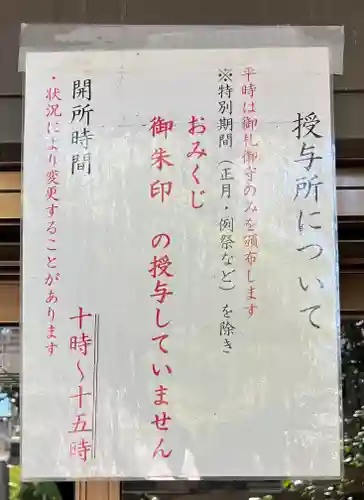 授与所について
平時は御札御守のみを頒布します
※特別期間（正月・例祭など）を除き
おみくじ
御朱印 の授与していません
開所時間 十時〜十五時
・状況により変更することがあります